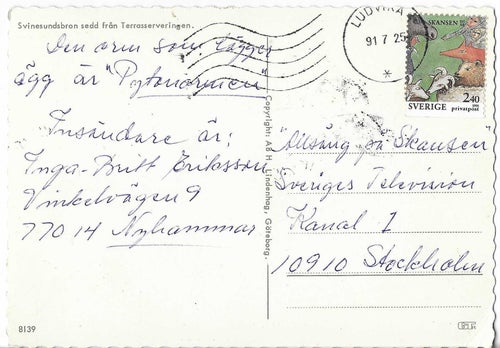 Svinesundsbron sedd från Terrasserveringen.
Den orm som lägger
ägg är "Pytonormen"
Insändare är:
Inga-Britt Eriksson
Vinkelvägen 9
770 14 Nyhammar
8139
Copyright: AB H. Lindenhag, Göteborg.
LUDVIKA
91 7 25
*
SKANSEN
2.40
SVERIGE privatpost
"Allsång på Skansen"
Sveriges Television
Kanal 1
10910 Stockholm